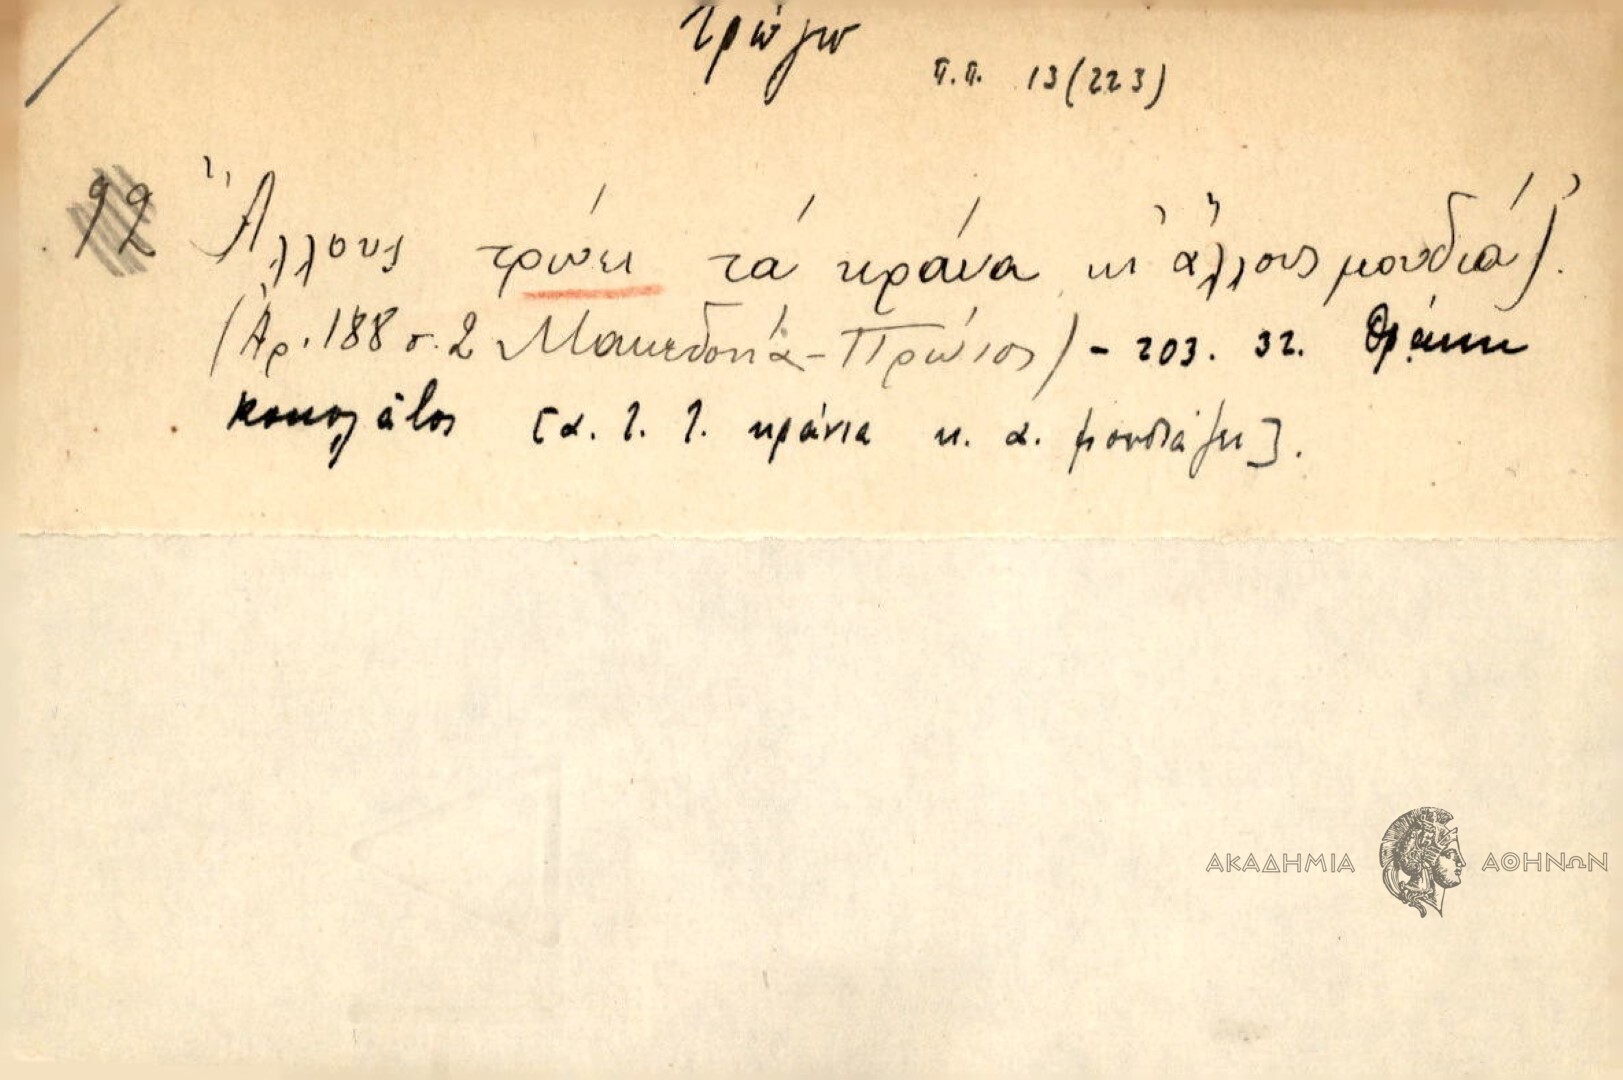 τρώγω
π.π. 13(223)
92 Ἄλλους τρώει τά κράνα κι ἄλλους μουδιά).
(Ἀρ. 188 σ. 2 Μακεδονία - Πρώτος) - 203. 32. Θράκη
[α. τ. τ. κράνια κ. α. μουδιάζει].
ΑΚΑΔΗΜΙΑ ΑΘΗΝΩΝ